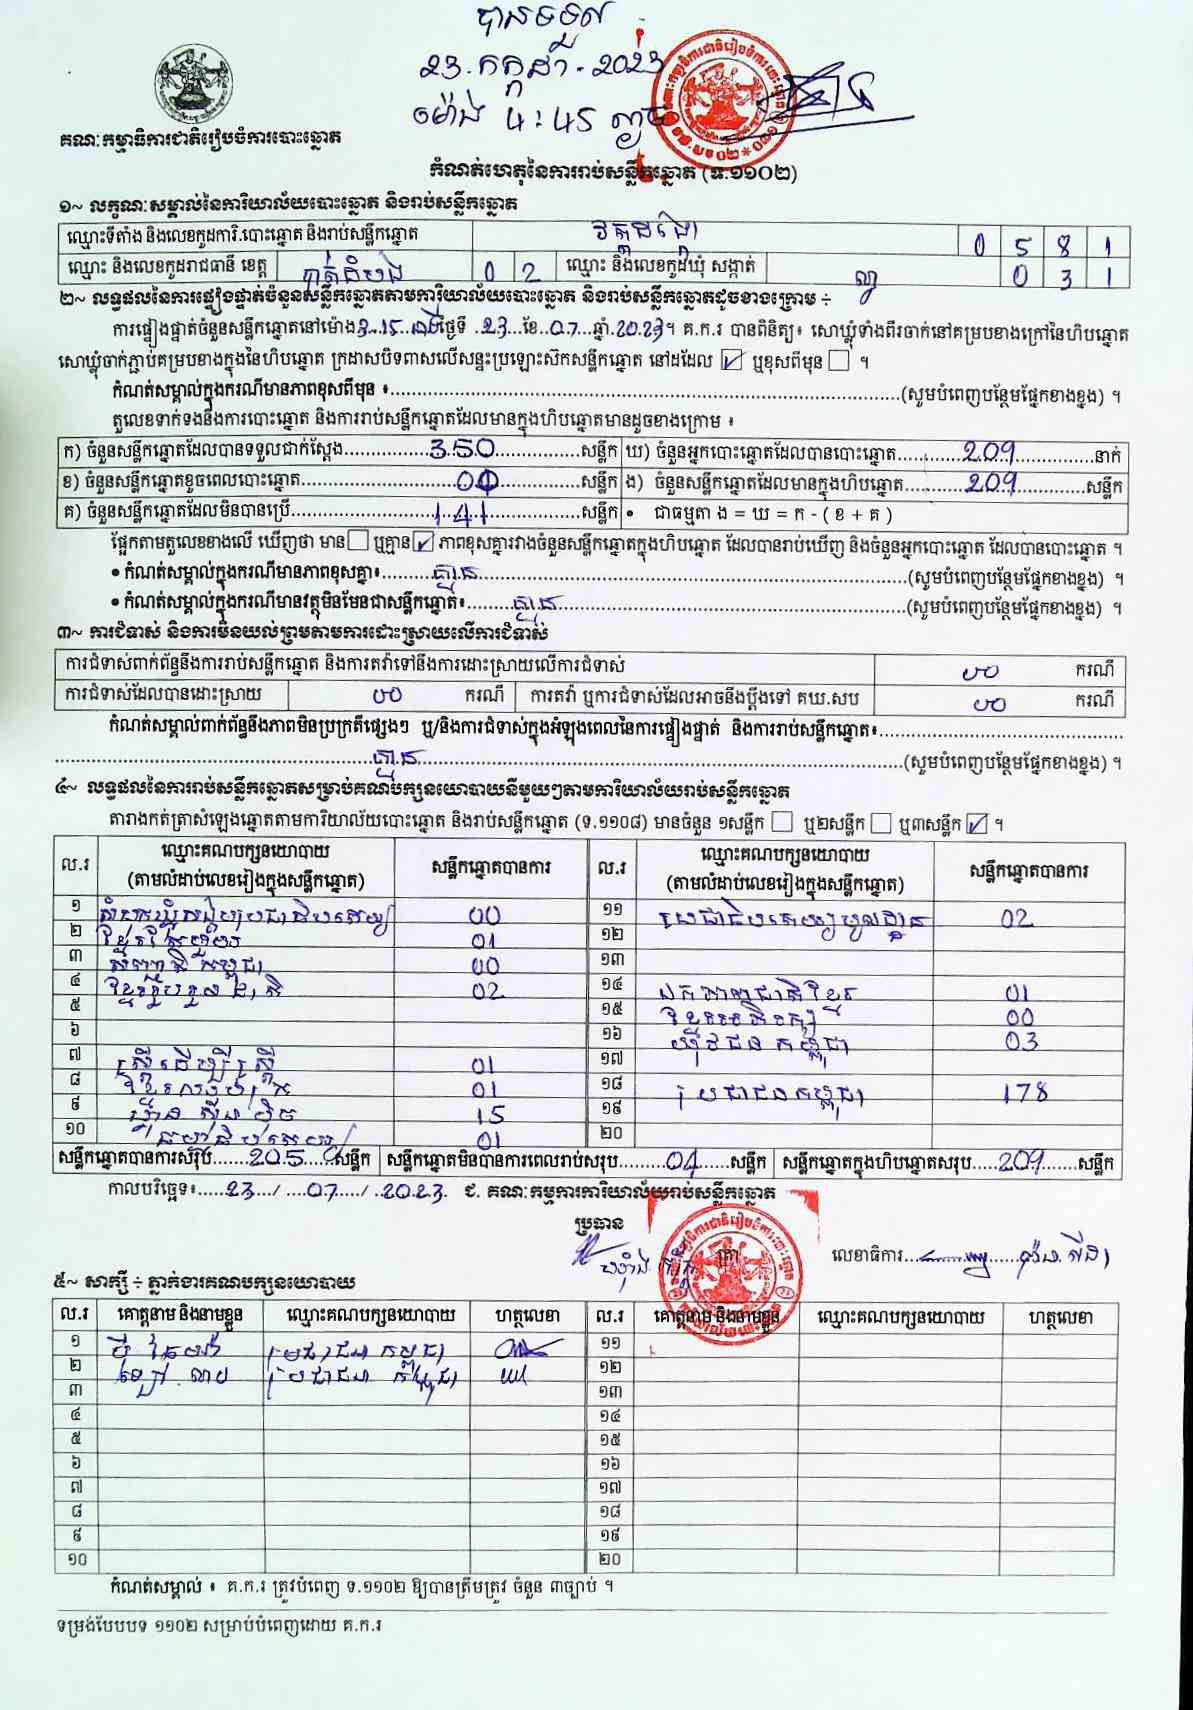 បានទទួល
23.កក្កដា.2023
ម៉ោង 4:45 ល្ងាច
គណៈកម្មាធិការជាតិរៀបចំការបោះឆ្នោត
កំណត់ហេតុនៃការរាប់សន្លឹកឆ្នោត (ទ.១១០២)
១~ លក្ខណៈសម្គាល់នៃការិយាល័យបោះឆ្នោត និងរាប់សន្លឹកឆ្នោត
ឈ្មោះទីតាំង និងលេខកូដការិ.បោះឆ្នោត និងរាប់សន្លឹកឆ្នោត 0 5 8 1
ឈ្មោះ និងលេខកូដរាជធានី ខេត្ត បាត់ដំបង 0 2 ឈ្មោះ និងលេខកូដឃុំ សង្កាត់ 0 3 1
២~ លទ្ធផលនៃការផ្ទៀងផ្ទាត់ចំនួនសន្លឹកឆ្នោតតាមការិយាល័យបោះឆ្នោត និងរាប់សន្លឹកឆ្នោតដូចខាងក្រោម ÷
ការផ្ទៀងផ្ទាត់ចំនួនសន្លឹកឆ្នោតនៅម៉ោង 3..15 ថ្ងៃទី .23...ខែ..07...ឆ្នាំ.2023។ គ.ក.រ បានពិនិត្យ៖ សោឃ្លុំទាំងពីរចាក់នៅគម្របខាងក្រៅនៃហិបឆ្នោត
សោឃ្លុំចាក់ភ្ជាប់គម្របខាងក្នុងនៃហិបឆ្នោត ក្រដាសបិទពាសលើសន្ទះប្រឡោះស៊កសន្លឹកឆ្នោត នៅដដែល ☑ ឬខុសពីមុន ☐ ។
កំណត់សម្គាល់ក្នុងករណីមានភាពខុសពីមុន ៖...(សូមបំពេញបន្ថែមផ្នែកខាងខ្នង) ។
តួលេខទាក់ទងនឹងការបោះឆ្នោត និងការរាប់សន្លឹកឆ្នោតដែលមានក្នុងហិបឆ្នោតមានដូចខាងក្រោម ៖
ក) ចំនួនសន្លឹកឆ្នោតដែលបានទទួលជាក់ស្តែង...350...សន្លឹក ឃ) ចំនួនអ្នកបោះឆ្នោតដែលបានបោះឆ្នោត...209...នាក់
ខ) ចំនួនសន្លឹកឆ្នោតខូចពេលបោះឆ្នោត...00...សន្លឹក ង) ចំនួនសន្លឹកឆ្នោតដែលមានក្នុងហិបឆ្នោត...209...សន្លឹក
គ) ចំនួនសន្លឹកឆ្នោតដែលមិនបានប្រើ...141...សន្លឹក • ជាធម្មតា ង = ឃ = ក - ( ខ + គ )
ផ្អែកតាមតួលេខខាងលើ ឃើញថា មាន ☐ ឬគ្មាន ☑ ភាពខុសគ្នារវាងចំនួនសន្លឹកឆ្នោតក្នុងហិបឆ្នោត ដែលបានរាប់ឃើញ និងចំនួនអ្នកបោះឆ្នោត ដែលបានបោះឆ្នោត ។
• កំណត់សម្គាល់ក្នុងករណីមានភាពខុសគ្នា៖...គ្មាន...(សូមបំពេញបន្ថែមផ្នែកខាងខ្នង) ។
• កំណត់សម្គាល់ក្នុងករណីមានវត្ថុមិនមែនជាសន្លឹកឆ្នោត៖...គ្មាន...(សូមបំពេញបន្ថែមផ្នែកខាងខ្នង) ។
៣~ ការជំទាស់ និងការមិនយល់ព្រមតាមការដោះស្រាយលើការជំទាស់
ការជំទាស់ពាក់ព័ន្ធនឹងការរាប់សន្លឹកឆ្នោត និងការតវ៉ាទៅនឹងការដោះស្រាយលើការជំទាស់ 00 ករណី
ការជំទាស់ដែលបានដោះស្រាយ 00 ករណី ការតវ៉ា ឬការជំទាស់ដែលអាចនឹងប្តឹងទៅ គឃ.សប 00 ករណី
កំណត់សម្គាល់ពាក់ព័ន្ធនឹងភាពមិនប្រក្រតីផ្សេងៗ ឬ/និងការជំទាស់ក្នុងអំឡុងពេលនៃការផ្ទៀងផ្ទាត់ និងការរាប់សន្លឹកឆ្នោត៖...
...គ្មាន...(សូមបំពេញបន្ថែមផ្នែកខាងខ្នង) ។
៤~ លទ្ធផលនៃការរាប់សន្លឹកឆ្នោតសម្រាប់គណបក្សនយោបាយនីមួយៗតាមការិយាល័យរាប់សន្លឹកឆ្នោត
តារាងកត់ត្រាសំឡេងឆ្នោតតាមការិយាល័យបោះឆ្នោត និងរាប់សន្លឹកឆ្នោត (ទ.១១០៨) មានចំនួន ១សន្លឹក ☐ ឬ២សន្លឹក ☐ ឬ៣សន្លឹក ☑ ។
ល.រ ឈ្មោះគណបក្សនយោបាយ (តាមលំដាប់លេខរៀងក្នុងសន្លឹកឆ្នោត) សន្លឹកឆ្នោតបានការ ល.រ ឈ្មោះគណបក្សនយោបាយ (តាមលំដាប់លេខរៀងក្នុងសន្លឹកឆ្នោត) សន្លឹកឆ្នោតបានការ
១ សំបុកឃ្មុំសង្គមប្រជាធិបតេយ្យ 00 ១១ ប្រជាធិបតេយ្យមូលដ្ឋាន 02
២ ខ្មែរតែមួយ 01 ១២
៣ កម្ពុជា 00 ១៣
៤ ខ្មែររួបរួមជាតិ 02 ១៤ ឯកភាពជាតិខ្មែរ 01
៥ ១៥ ខ្មែរអភិរក្ស 00
៦ ១៦ យុវជនកម្ពុជា 03
៧ ស្ត្រីដើម្បីស្ត្រី 01 ១៧
៨ 01 ១៨ ប្រជាជនកម្ពុជា 178
៩ ហ្វ៊ុនស៊ិនប៉ិច 15 ១៩
១០ ធម្មាធិបតេយ្យ 01 ២០
សន្លឹកឆ្នោតបានការសរុប...205...សន្លឹក សន្លឹកឆ្នោតមិនបានការពេលរាប់សរុប...04...សន្លឹក សន្លឹកឆ្នោតក្នុងហិបឆ្នោតសរុប...209...សន្លឹក
កាលបរិច្ឆេទ៖...23.../...07.../..2023. ជ. គណៈកម្មការការិយាល័យរាប់សន្លឹកឆ្នោត
ប្រធាន
លេខាធិការ
៥~ សាក្សី ÷ ភ្នាក់ងារគណបក្សនយោបាយ
ល.រ គោត្តនាម និងនាមខ្លួន ឈ្មោះគណបក្សនយោបាយ ហត្ថលេខា ល.រ គោត្តនាម និងនាមខ្លួន ឈ្មោះគណបក្សនយោបាយ ហត្ថលេខា
១ ប្រជាជនកម្ពុជា ១១
២ ប្រជាជន កម្ពុជា ១២
៣ ១៣
៤ ១៤
៥ ១៥
៦ ១៦
៧ ១៧
៨ ១៨
៩ ១៩
១០ ២០
កំណត់សម្គាល់ ៖ គ.ក.រ ត្រូវបំពេញ ទ.១១០២ ឱ្យបានត្រឹមត្រូវ ចំនួន ៣ច្បាប់ ។
ទម្រង់បែបបទ ១១០២ សម្រាប់បំពេញដោយ គ.ក.រ